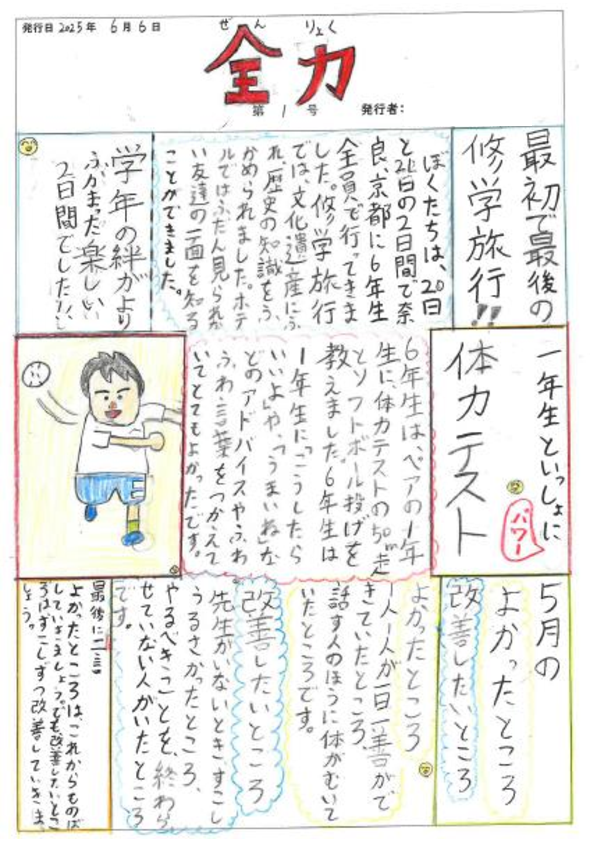 発行日 2025年 6月6日
ぜんりょく
全力
第1号
発行者:
最初で最後の
修学旅行!!
ぼくたちは、20日
と21日の2日間で奈
良、京都に6年生
全員で行ってきま
した。修学旅行
では、文化遺産にふ
れ、歴史の知識をふ
かめられました。ホテ
ルではふだん見られな
い友達の一面を知る
ことができました。
学年の絆がより
ふかまった楽しい
2日間でした!!
一年生といっしょに
体力テスト
パワー
6年生は、ペアの1年
生に体力テストの50m走
とソフトボール投げを
教えました。6年生は
1年生に「こうしたら
いいよ」や、「うまいね」な
どのアドバイスやふわ
ふわ言葉をつかえて
いてとてもよかったです。
5月の
よかったところ
改善したいところ
よかったところ
一人一人が一日一善がで
きていたところ、
話す人のほうに体がむいて
いたところです。
改善したいところ
先生がいないときすこし
うるさかったところ、
やるべきことを、終わら
せていない人がいたところ
です。
最後に一言
よかったところは、これからものば
していきましょう。でも、改善したいとこ
ろはすこしずつ改善していきま
しょう。